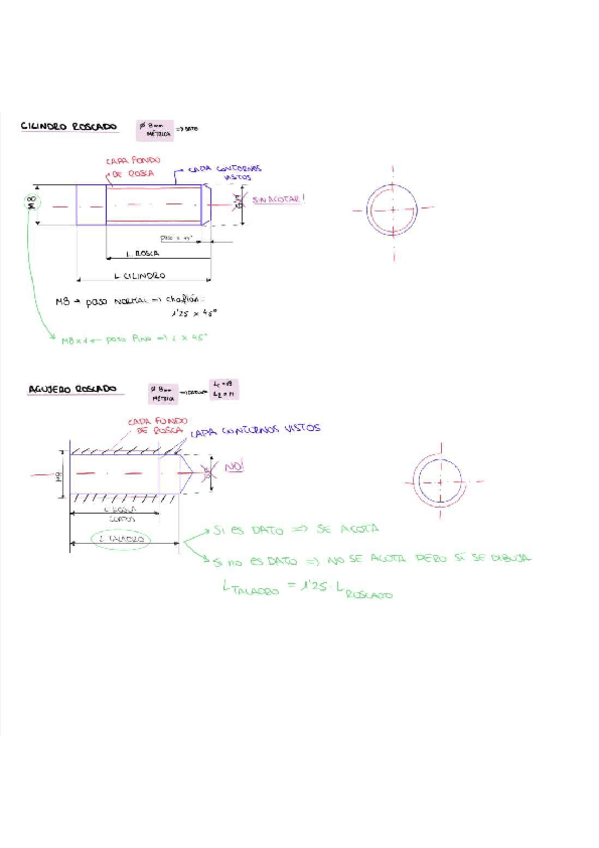 CILINDRO ROSCADO
Ø 8mm
MÉTRICA
=> DATO
CAPA FONDO
DE ROSCA
CAPA CONTORNOS
VISTOS
M8
SIN ACOTAR!
PASO x 45°
L ROSCA
L CILINDRO
M8 → paso NORMAL => chaflán:
1'25 x 45°
M8x1 ← paso FINO => 1 x 45°
AGUJERO ROSCADO
Ø 8mm
MÉTRICA
CAPA FONDO
DE ROSCA
CAPA CONTORNOS VISTOS
M8
NO!
L ROSCA
L TALADRO
SI ES DATO => SE ACOTA
SI NO ES DATO => NO SE ACOTA PERO SÍ SE DIBUJA
L TALADRO = 1'25 · L ROSCADO